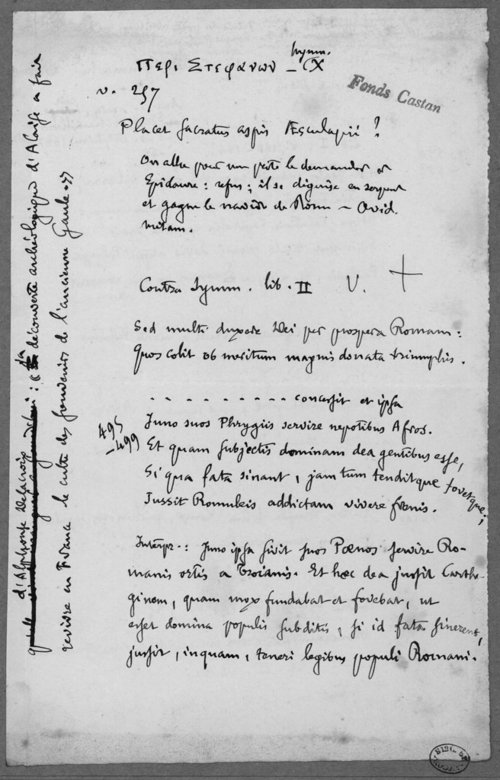 Περι Στεφανων — hymn. X
v. 257
Fonds Castan
Placet sacratus aspis Æsculapii ?
On alla pour un peste le demander à
Epidaure : refus ; il se déguise en serpent
et gagne le navire de Rome — Ovid.
métam.
Contra Symm. lib. II V. +
Sed multi duxere Dei per prospera Romam :
Quos colit ob meritum magnis donata triumphis.
. . . . . . . . . . concessit et ipsa
495
—499
Juno suos Phrygiis servire nepotibus Afros.
Et quam subjectis dominam dea gentibus esse,
Si qua fata sinant, jam tum tenditque fovetque ;
Jussit Romuleis addictam vivere frenis.
Interpr. : Juno ipsa sivit suos Pœnos servire Ro-
manis ortis a Troianis. Et hæc dea jussit Cartha-
ginem, quam mox fundabat et fovebat, ut
esset domina populis subditis, si id fata sinerent,
jussit, inquam, teneri legibus populi Romani.
d'Alphonse Delacroix : la découverte archéologique d'Alaise a fait
revivre en France le culte des souvenirs de l'ancienne Gaule »